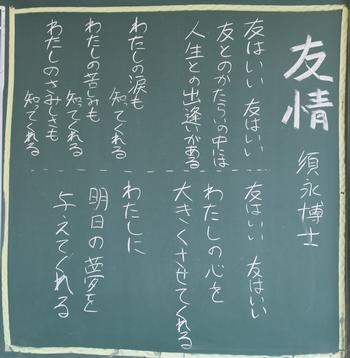 友情
須永博士
友はいい 友はいい
友とのかたらいの中には
人生との出逢いがある
わたしの涙も
知ってくれる
わたしの苦しみも
知ってくれる
わたしのさみしさも
知ってくれる
友はいい 友はいい
わたしの心を
大きくさせてくれる
わたしに
明日の夢を
与えてくれる